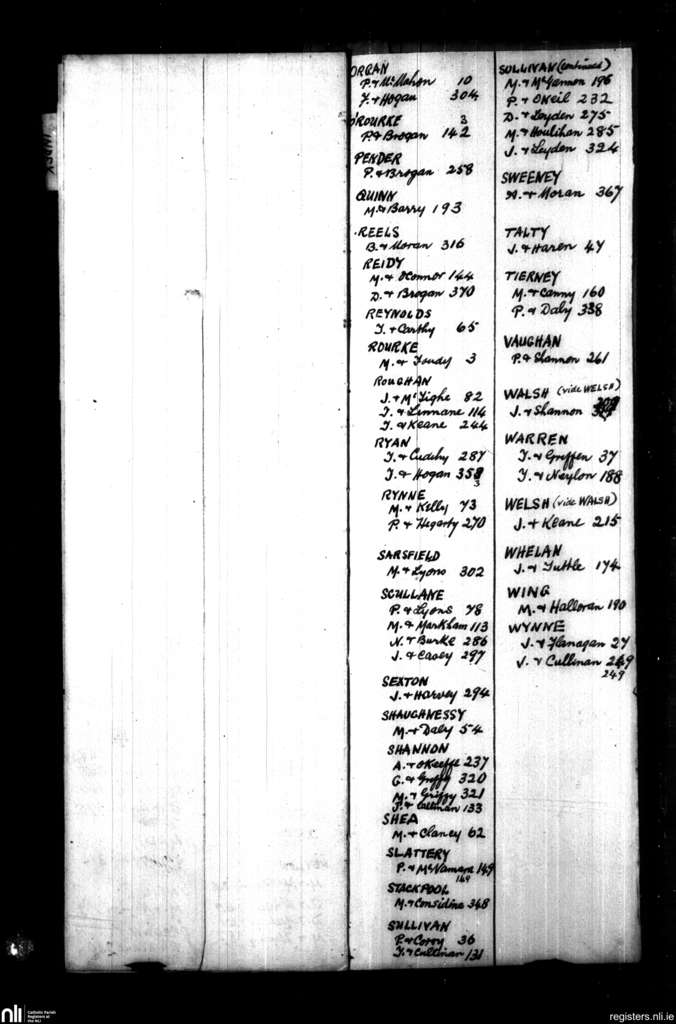 INDEX
ORGAN
P. + McMahon 10
J. + Hogan 304
O'ROURKE 3
P. + Brogan 142
PENDER
P. + Brogan 258
QUINN
M. + Barry 193
REELS
B. + Moran 316
REIDY
M. + O'Connor 144
D. + Brogan 370
REYNOLDS
T. + Carthy 65
ROURKE
M. + 3
ROUGHAN
J. + McTighe 82
T. + Linnane 114
T. + Keane 244
RYAN
T. + Cudihy 287
T. + Hogan 353
3
RYNNE
M. + Kelly 73
P. + Hegarty 270
SARSFIELD
M. + Lyons 302
SCULLANE
P. + Lyons 78
M. + Markham 113
N. + Burke 286
J. + Casey 297
SEXTON
J. + Harvey 294
SHAUGHNESSY
M. + Daly 54
SHANNON
A. + O'Keeffe 237
G. + Griffy 320
M. + Griffy 321
J. + Cullinan 133
SHEA
M. + Clancy 62
SLATTERY
P. + McNamara 149
149
STACKPOOL
M. + Considine 348
SULLIVAN
P. + Corry 36
T. + Cullinan 131
SULLIVAN (continued)
M. + McGannon 196
P. + O'Neil 232
D. + Leyden 275
M. + Houlihan 285
J. + Leyden 324
SWEENEY
A. + Moran 367
TALTY
J. + Haren 47
TIERNEY
M. + Canny 160
P. + Daly 338
VAUGHAN
P. + Shannon 261
WALSH (vide WELSH)
J. + Shannon
WARREN
T. + Griffen 37
T. + Neylon 188
WELSH (vide WALSH)
J. + Keane 215
WHELAN
J. + Tuttle 174
WING
M. + Halloran 190
WYNNE
J. + Flanagan 27
J. + Cullinan 249
249
nli
Catholic Parish
Registers at
the NLI
registers.nli.ie